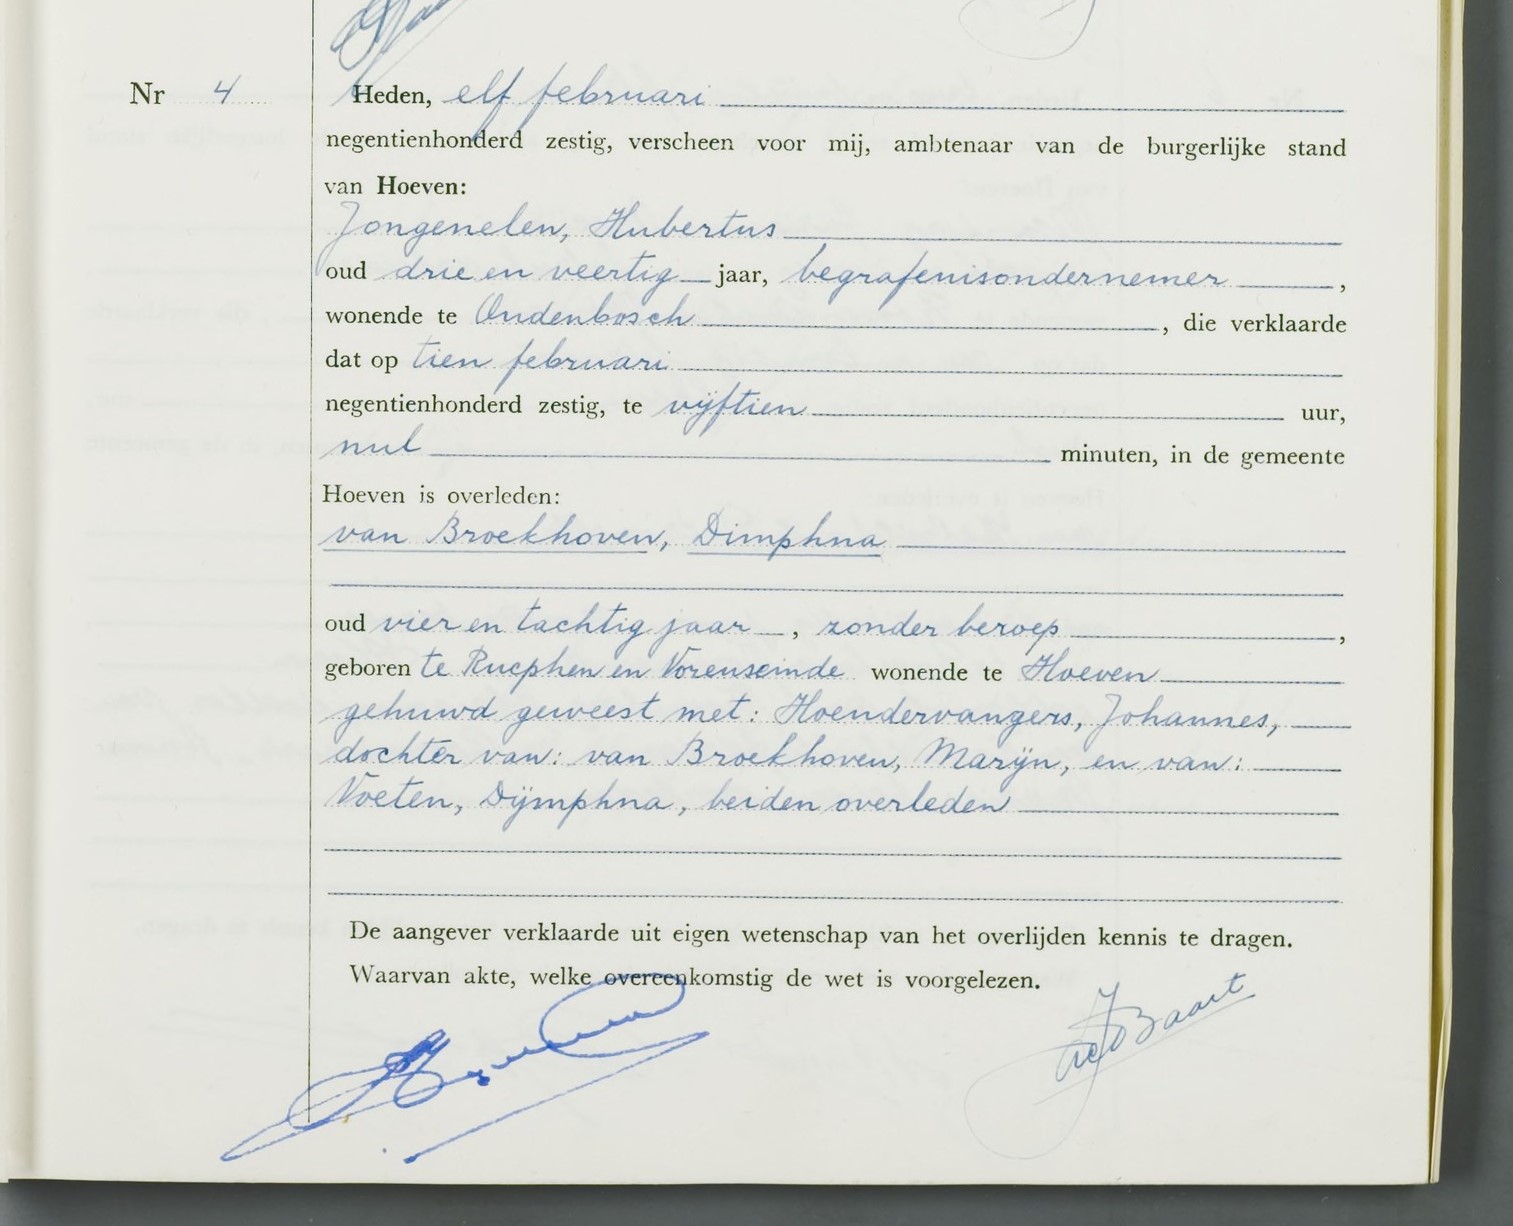 Nr 4 Heden, elf februari
negentienhonderd zestig, verscheen voor mij, ambtenaar van de burgerlijke stand
van Hoeven:
Jongenelen, Hubertus
oud drie en veertig jaar, begrafenisondernemer,
wonende te Oudenbosch, die verklaarde
dat op tien februari
negentienhonderd zestig, te vijftien uur,
nul minuten, in de gemeente
Hoeven is overleden:
van Broekhoven, Dimphna
oud vier en tachtig jaar, zonder beroep,
geboren te Rucphen en Vorenseinde wonende te Hoeven
gehuwd geweest met: Hoendervangers, Johannes,
dochter van: van Broekhoven, Marijn, en van:
Voeten, Dijmphna, beiden overleden
De aangever verklaarde uit eigen wetenschap van het overlijden kennis te dragen.
Waarvan akte, welke overeenkomstig de wet is voorgelezen.
Baart